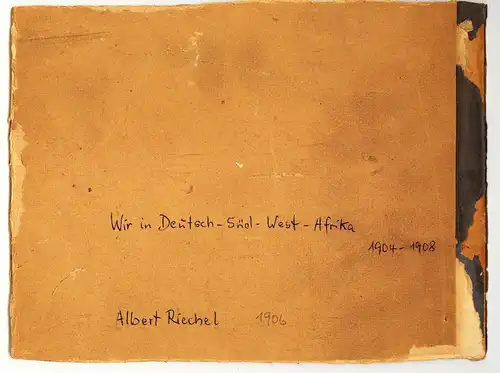 Wir in Deutsch-Süd-West-Afrika
1904-1908
Albert Riechel 1906